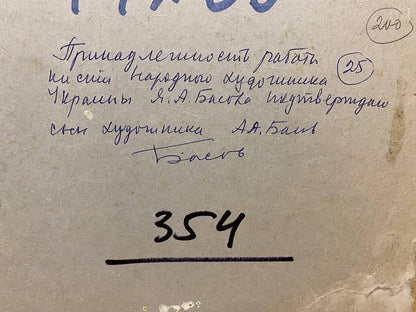 200
Принадлежность работы
25
кисти народного художника
Украины Я.А.Басова подтверждаю
сын художника А.А.Басов
Басов
354